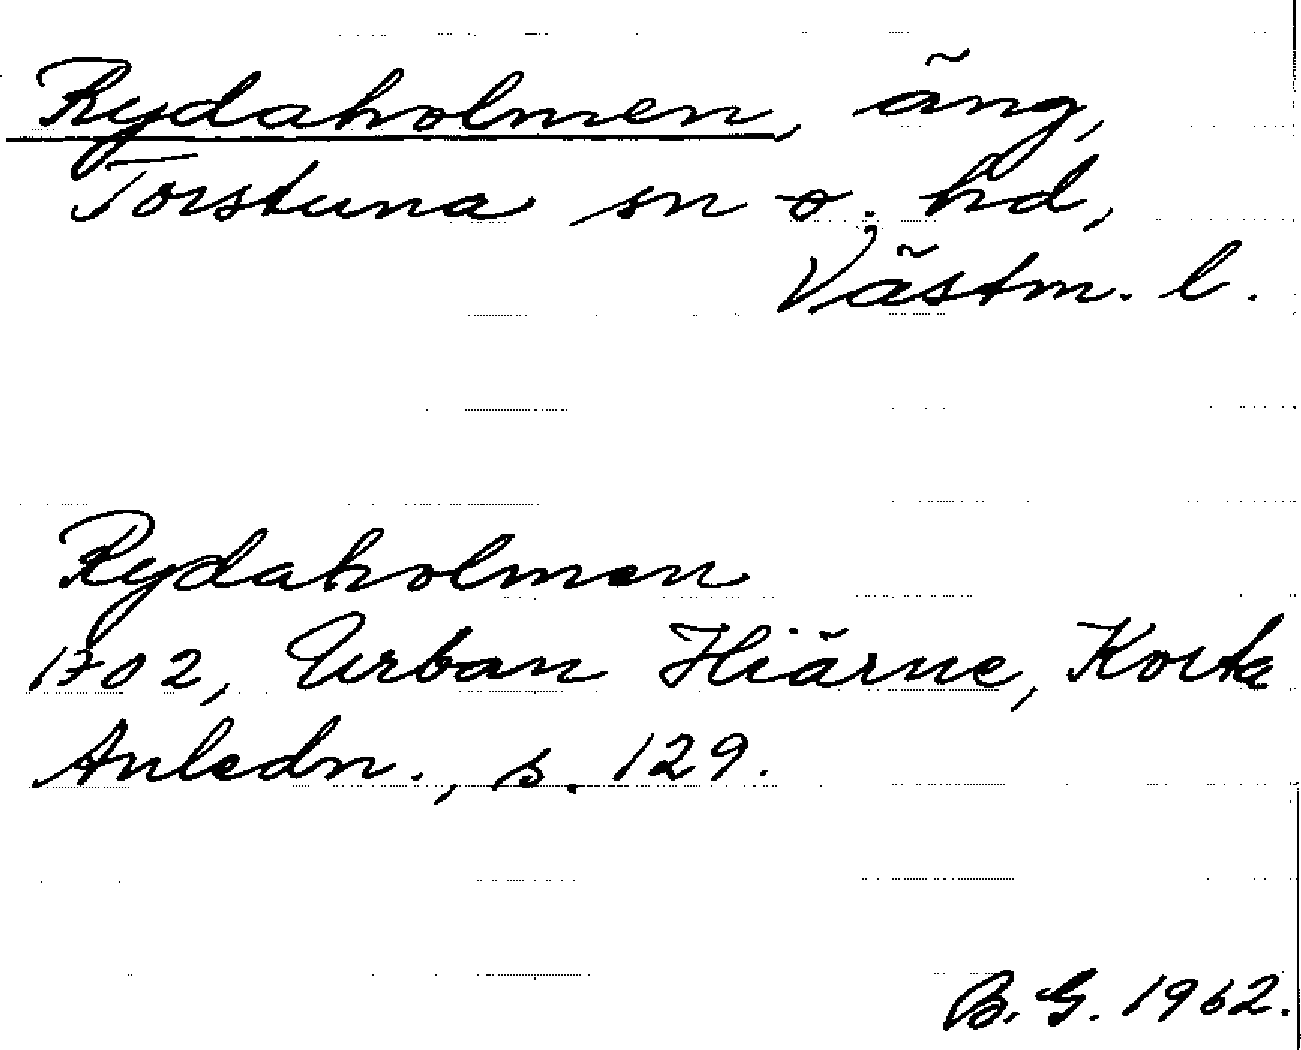 Rydaholmen, äng,
Torstuna sn o. hd,
Västm. l.
Rydaholmen
1702, Urban Hiärne, Korta
Anledn., s. 129.
B. G. 1962.